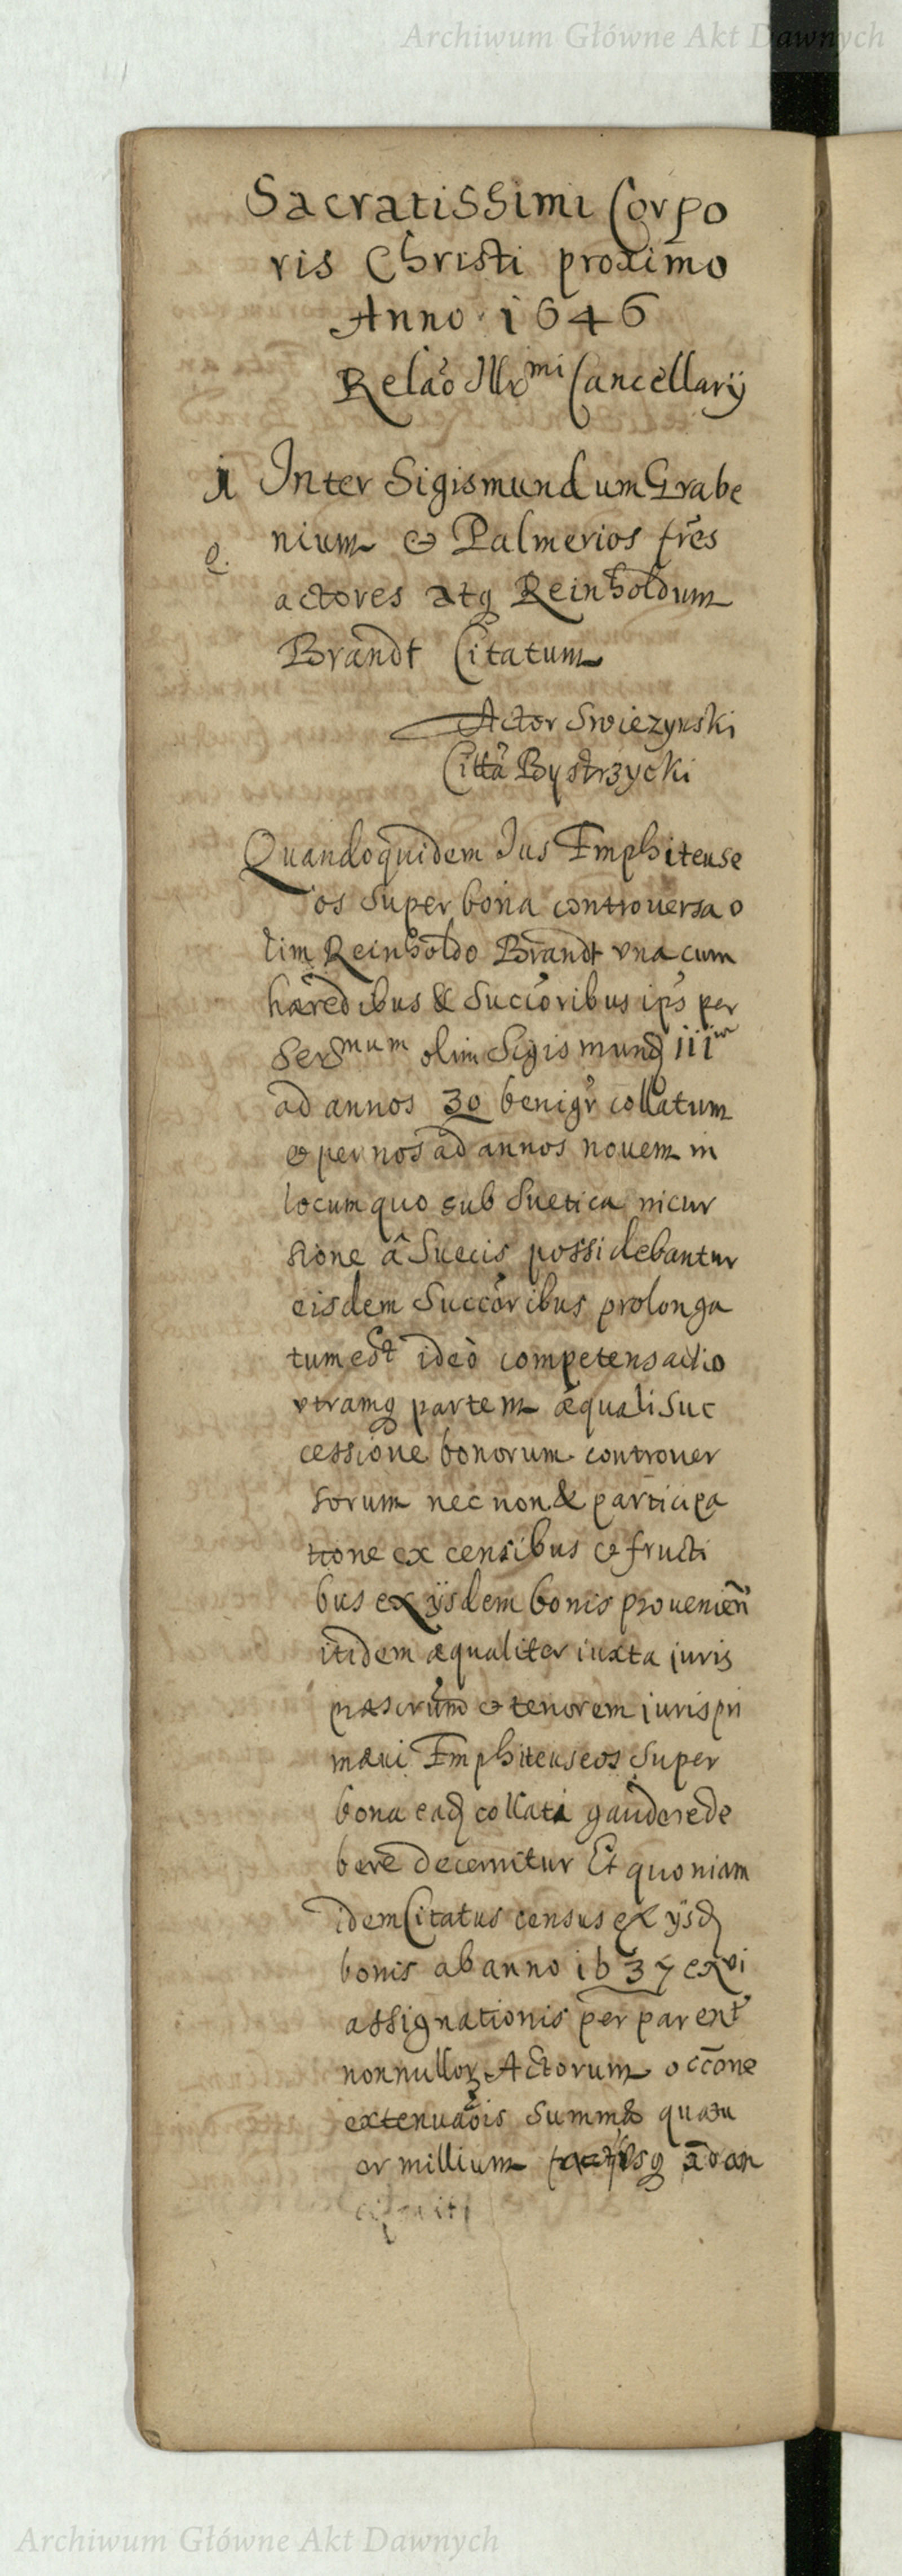 Archiwum Główne Akt Dawnych
Sacratissimi Corpo
ris Christi proximo
Anno 1646
Relão Illrᵐⁱ Cancellarÿ
1 Inter Sigismundum Grabe
nium & Palmerios frẽs
e.
actores atq Reinholdum
Brandt Citatum
Actor Swiezynski
Cittã Bystrzycki
Quandoquidem Ius Emphiteuse
os super bona controuersa o
lim Reinholdo Brandt vna cum
hæredibus & Succõribus ips per
Serᵐᵘᵐ olim Sigismund iii
ad annos 30 benigr collatum
& per nos ad annos nouem in
locum quo sub Suetica incur
sione â Suecis possidebantur
eisdem Succõribus prolonga
tum est ideò competens
vtramq partem æquali suc
cessione bonorum controuer
sorum nec non & participa
tione ex censibus & fructi
bus ex ijsdem bonis prouenien̄
itidem æqualiter iuxta juris
& tenorem juris pri
mæui Emphiteuseos super
bona ead collati gaudere de
bere decernitur Et quoniam
idem Citatus census ex ijsd
bonis ab anno 1637 ex vi
assignationis per parent
nonnulloꝝ Actorum occõne
extenuãois summæ quatu
or millium
Archiwum Główne Akt Dawnych